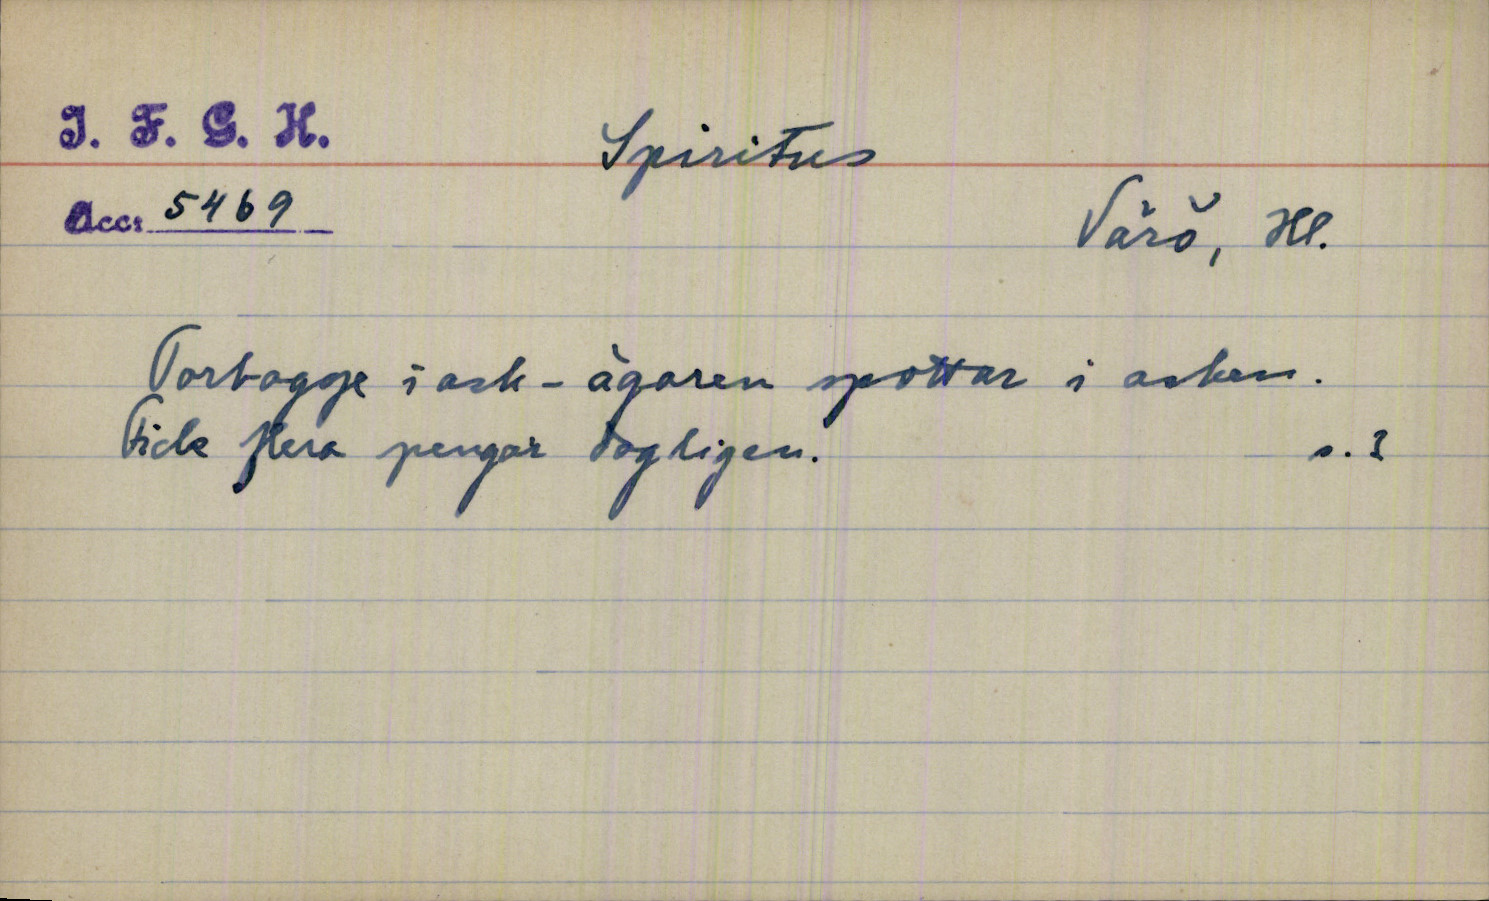 I. F. G. H.
Spiritus
Acc: 5469
Värö, Hl.
Torbagge i ask - ägaren spottar i asken.
Fick flera pengar dagligen. s. 3